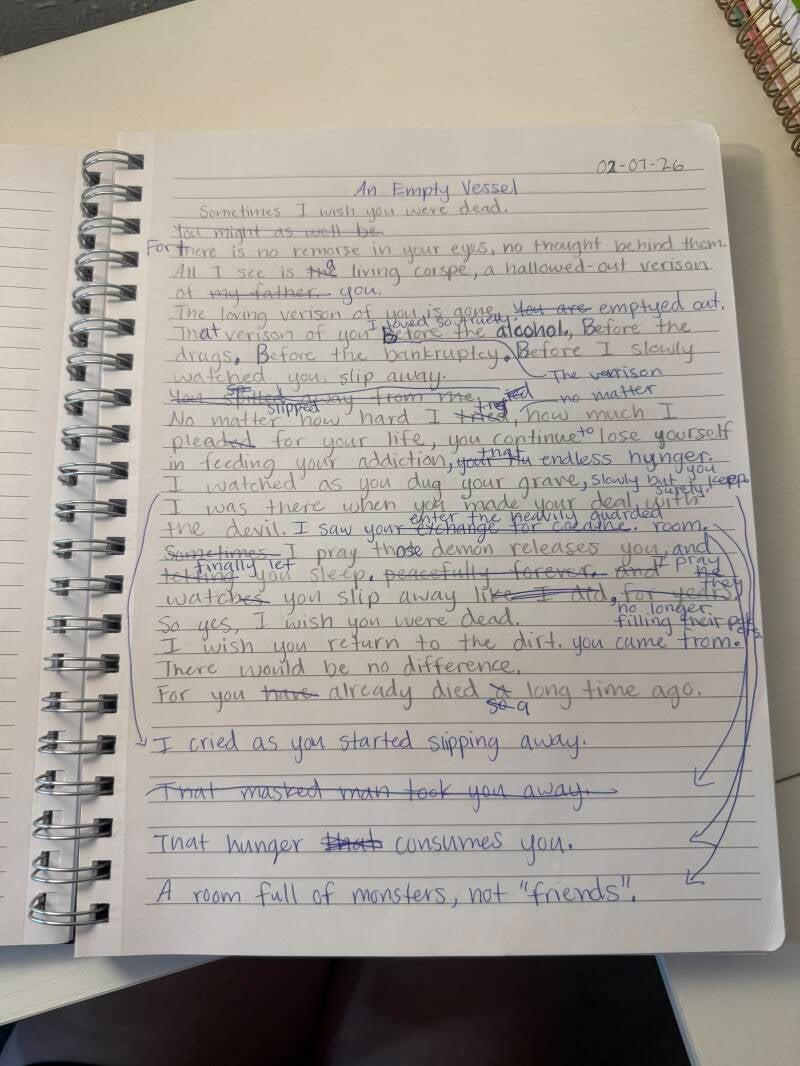 02-07-26
An Empty Vessel
Sometimes I wish you were dead.
You might as well be
For there is no remorse in your eyes, no thought behind them.
All I see is the a living corspe, a hallowed-out verison
of my father. you.
The loving verison of you is gone. You are emptyed out.
I loved so truely.
That verison of you Before the alcohol, Before the
drugs. Before the bankruptcy. Before I slowly
watched you slip away.
The verrison
You spilled away from me.
slipped
no matter
No matter how hard I tried, how much I
pleaded for your life, you continue to lose yourself
in feeding your addiction, your that endless hunger.
I watched as you dug your grave, slowly but surely. you keep
I was there when you made your deal with
enter the heavily guarded
the devil. I saw your exchange for cocaine. room.
Sometimes I pray those demon releases you, and
finally let
I pray
letting you sleep. peacefully forever. and
they
watches you slip away like I did, for years.
no longer
So yes, I wish you were dead.
filling their pockets
I wish you return to the dirt. you came from.
There would be no difference.
For you have already died a long time ago.
so a
I cried as you started slipping away.
That masked man took you away.
That hunger that consumes you.
A room full of monsters, not "friends".